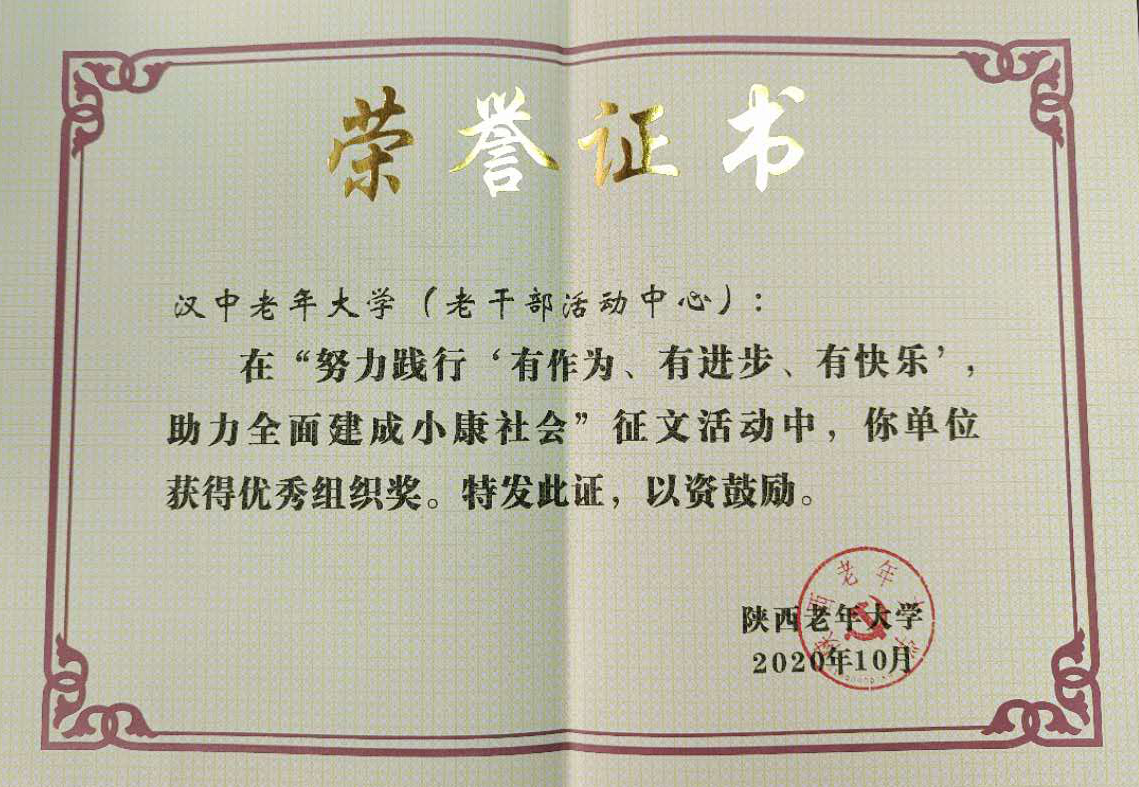 荣誉证书
汉中老年大学（老干部活动中心）：
在“努力践行‘有作为、有进步、有快乐’，
助力全面建成小康社会”征文活动中，你单位
获得优秀组织奖。特发此证，以资鼓励。
陕西老年大学
陕西老年大学
2020年10月